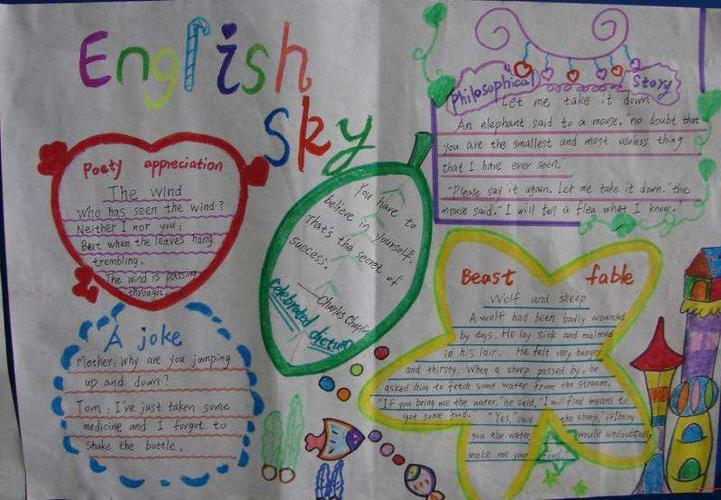 English
Sky
Poety appreciation
The wind
Who has seen the wind?
Neither I nor you;
But when the leaves hang
trembling.
The wind is passing
through.
A joke
Mother: why are you jumping
up and down?
Tom: I've just taken some
medicine and I forgot to
shake the bottle.
You have to
believe in yourself.
That's the secret of
success.
Charles Chaplin
celebrated dictum
Philosophical Story
Let me take it down
An elephant said to a mouse, "no doubt that
you are the smallest and most useless thing
that I have ever seen."
"Please say it again. Let me take it down." the
mouse said. "I will tell a flea what I know."
Beast fable
Wolf and sheep
A wolf had been badly wounded
by dogs. He lay sick and maimed
in his lair. He felt very hungry
and thirsty. When a sheep passed by, he
asked him to fetch some water from the stream.
"If you bring me the water," he said, "I will find means to
get some food." "Yes," said the sheep, "if I bring
you the water, would undoubtedly
make me your food."